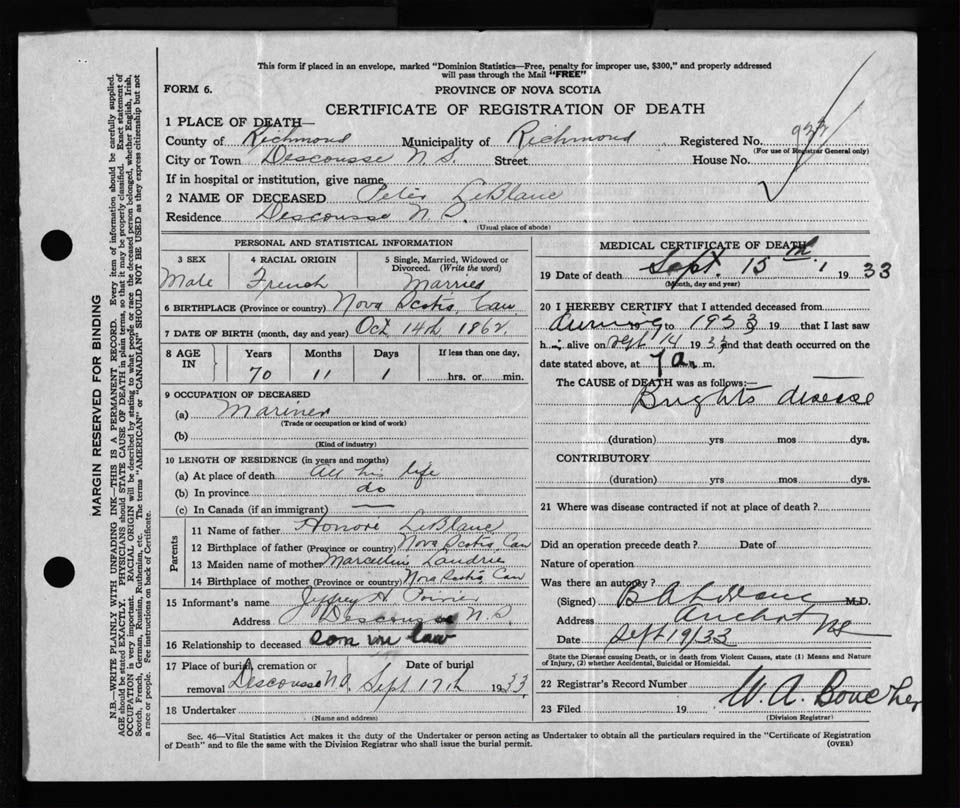 This form if placed in an envelope, marked "Dominion Statistics—Free, penalty for improper use, $300," and properly addressed
will pass through the Mail "FREE"
FORM 6.
PROVINCE OF NOVA SCOTIA
CERTIFICATE OF REGISTRATION OF DEATH
1 PLACE OF DEATH—
County of Richmond Municipality of Richmond Registered No. 933
(For use of Registrar General only)
City or Town Descousse N.S. Street House No.
If in hospital or institution, give name
2 NAME OF DECEASED Peter LeBlanc
Residence Descousse N.S.
(Usual place of abode)
PERSONAL AND STATISTICAL INFORMATION
3 SEX 4 RACIAL ORIGIN 5 Single, Married, Widowed or
Divorced. (Write the word)
Male French Married
6 BIRTHPLACE (Province or country) Nova Scotia, Can
7 DATE OF BIRTH (month, day and year) Oct 14th 1862
8 AGE IN Years Months Days If less than one day,
70 11 1 hrs. or min.
9 OCCUPATION OF DECEASED
(a) Mariner
(Trade or occupation or kind of work)
(b)
(Kind of industry)
10 LENGTH OF RESIDENCE (in years and months)
(a) At place of death All his life
(b) In province do
(c) In Canada (if an immigrant) —
Parents
11 Name of father Honore LeBlanc
12 Birthplace of father (Province or country) Nova Scotia, Can
13 Maiden name of mother Marceline Landrie
14 Birthplace of mother (Province or country) Nova Scotia, Can
15 Informant's name Jeffrey H. Poirier
Address Descousse N.S.
16 Relationship to deceased son in law
17 Place of burial, cremation or Date of burial
removal Descousse N.S. Sept 17th 1933
18 Undertaker
(Name and address)
MEDICAL CERTIFICATE OF DEATH
19 Date of death Sept. 15th 1933
(Month, day and year)
20 I HEREBY CERTIFY that I attended deceased from
during to 1933 19 that I last saw
h alive on Sept 14 1933 and that death occurred on the
date stated above, at 7 a. m.
The CAUSE of DEATH was as follows:—
Brights disease
(duration) yrs mos dys.
CONTRIBUTORY
(duration) yrs mos dys.
21 Where was disease contracted if not at place of death?
Did an operation precede death? Date of
Nature of operation
Was there an autopsy?
(Signed) B A LeBlanc M.D.
Address Arichat NS
Date Sept 19/33
State the Disease causing Death, or in death from Violent Causes, state (1) Means and Nature
of Injury, (2) whether Accidental, Suicidal or Homicidal.
22 Registrar's Record Number
23 Filed 19 W. A. Boucher
(Division Registrar)
Sec. 46—Vital Statistics Act makes it the duty of the Undertaker or person acting as Undertaker to obtain all the particulars required in the "Certificate of Registration
of Death" and to file the same with the Division Registrar who shall issue the burial permit. (OVER)
MARGIN RESERVED FOR BINDING
N.B.—WRITE PLAINLY WITH UNFADING INK—THIS IS A PERMANENT RECORD. Every item of information should be carefully supplied.
AGE should be stated EXACTLY. PHYSICIANS should STATE CAUSE OF DEATH in plain terms, so that it may be properly classified. Exact statement of
OCCUPATION is very important. RACIAL ORIGIN will be described by stating to what people or race the deceased person belonged, whether English, Irish,
Scotch, French, German, Russian, Ruthenian, etc. The terms "AMERICAN" or "CANADIAN" SHOULD NOT BE USED as they express citizenship but not
a race or people. See instructions on back of Certificate.